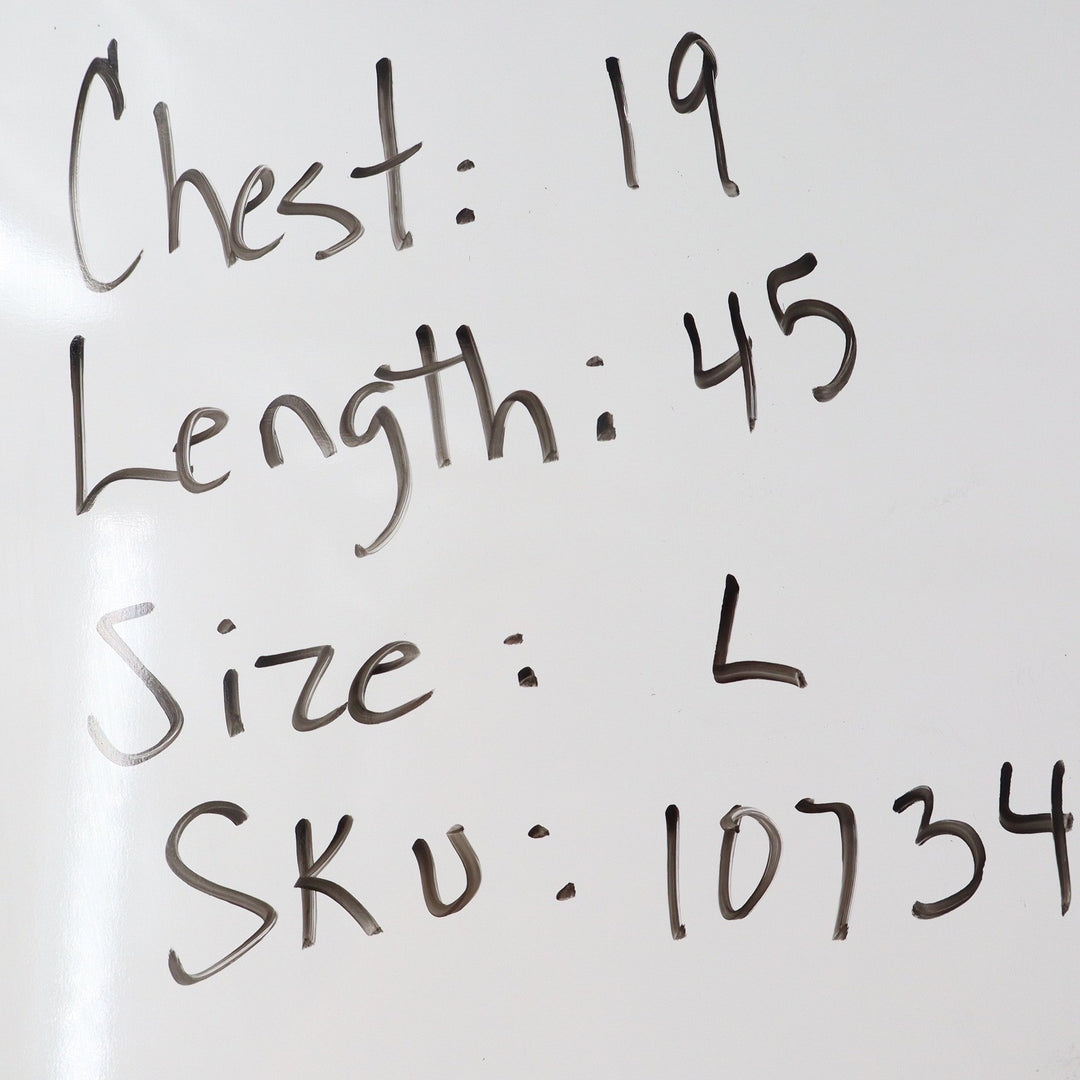 Chest: 19
Length: 45
Size: L
SKU: 10734